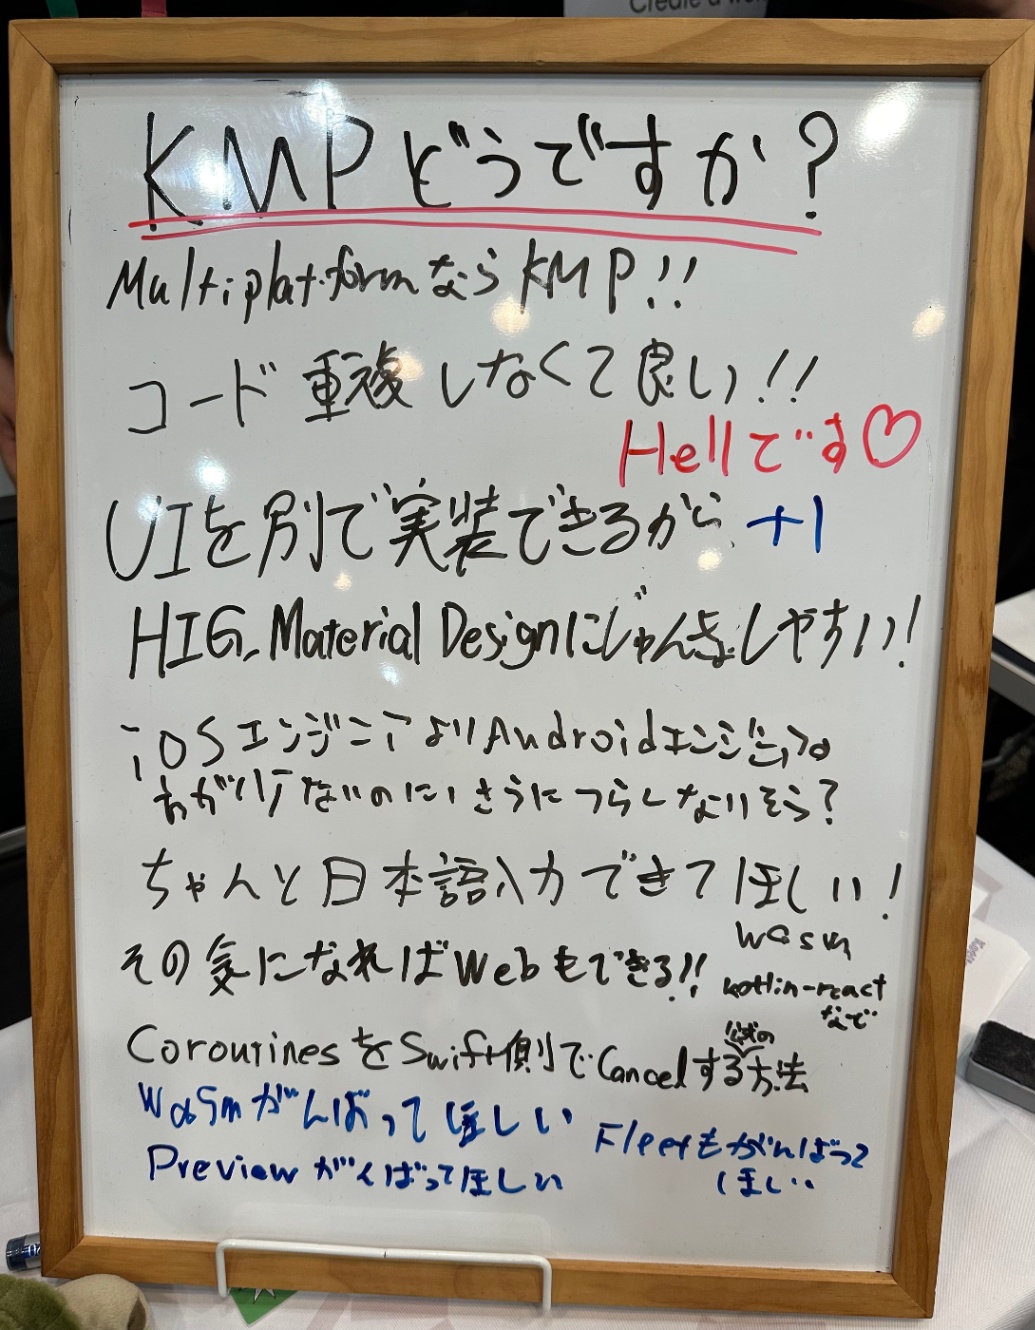 KMPどうですか?
MultiplatformならKMP!!
コード重複しなくて良い!!
Hellです♡
UIを別で実装できるから +1
HIG、Material Designにじゅんきょしやすい!
iOSエンジニアよりAndroidエンジニアの
ちゃんと日本語入力できてほしい!
その気になればWebもできる!!
wasm
kotlin-react
など
CoroutinesをSwift側でCancelする公式の方法
Wasmがんばってほしい
Fleetもがんばって
ほしい
Previewがんばってほしい